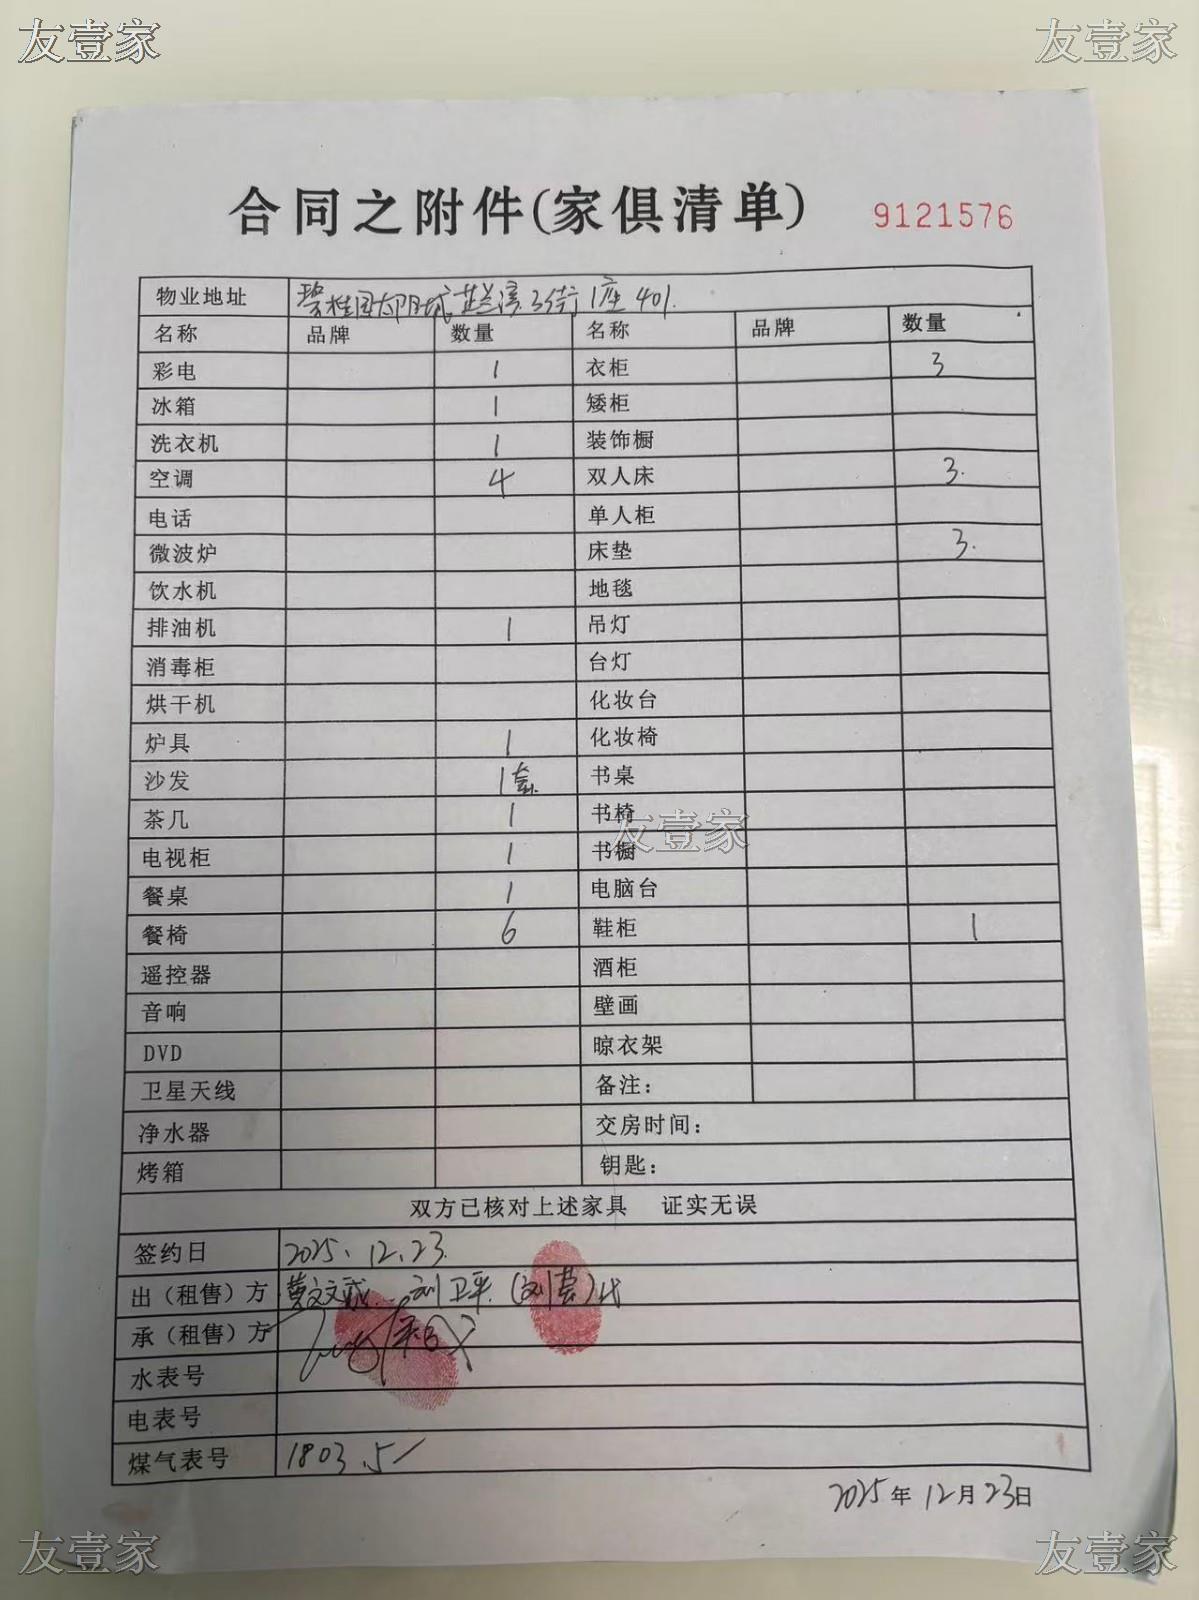 友壹家 友壹家
合同之附件(家俱清单) 9121576
物业地址 碧桂园太阳城芷兰溪3街1座401.
名称 品牌 数量 名称 品牌 数量
彩电 1 衣柜 3
冰箱 1 矮柜
洗衣机 1 装饰橱
空调 4 双人床 3.
电话 单人柜
微波炉 床垫 3.
饮水机 地毯
排油机 1 吊灯
消毒柜 台灯
烘干机 化妆台
炉具 1 化妆椅
沙发 1套. 书桌
茶几 1 书椅
友壹家
电视柜 1 书橱
餐桌 1 电脑台
餐椅 6 鞋柜 1
遥控器 酒柜
音响 壁画
DVD 晾衣架
卫星天线 备注:
净水器 交房时间:
烤箱 钥匙:
双方已核对上述家具 证实无误
签约日 2025、12、23.
出(租售)方 刘卫平 代
承(租售)方
水表号
电表号
煤气表号 1803.5
2025年12月23日
友壹家 友壹家